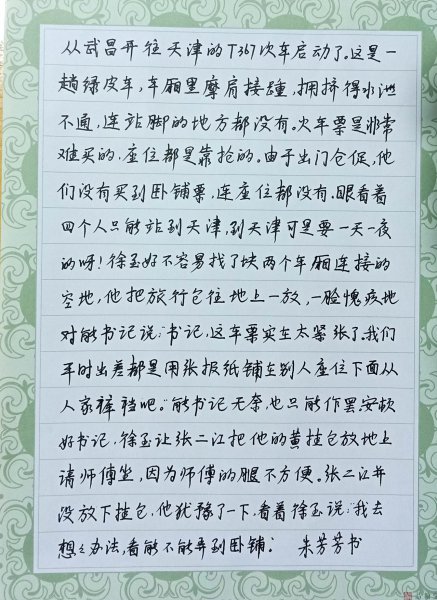 从武昌开往天津的T367次车启动了。这是一
趟绿皮车,车厢里摩肩接踵,拥挤得水泄
不通,连站脚的地方都没有。火车票是非常
难买的,座位都是靠抢的。由于出门仓促,他
们没有买到卧铺票,连座位都没有。眼看着
四个人只能站到天津,到天津可是要一天一夜
的呀!徐玉好不容易找了块两个车厢连接的
空地,他把旅行包往地上一放,一脸愧疚地
对熊书记说:“书记,这车票实在太紧张了。我们
平时出差都是用张报纸铺在别人座位下面从
人家裤裆吧。”熊书记无奈,也只能作罢。安顿
好书记,徐玉让张二江把他的黄挂包放地上
请师傅坐,因为师傅的腿不方便。张二江并
没放下挂包,他犹豫了一下,看着徐玉说:“我去
想想办法,看能不能弄到卧铺。” 朱芳芳书